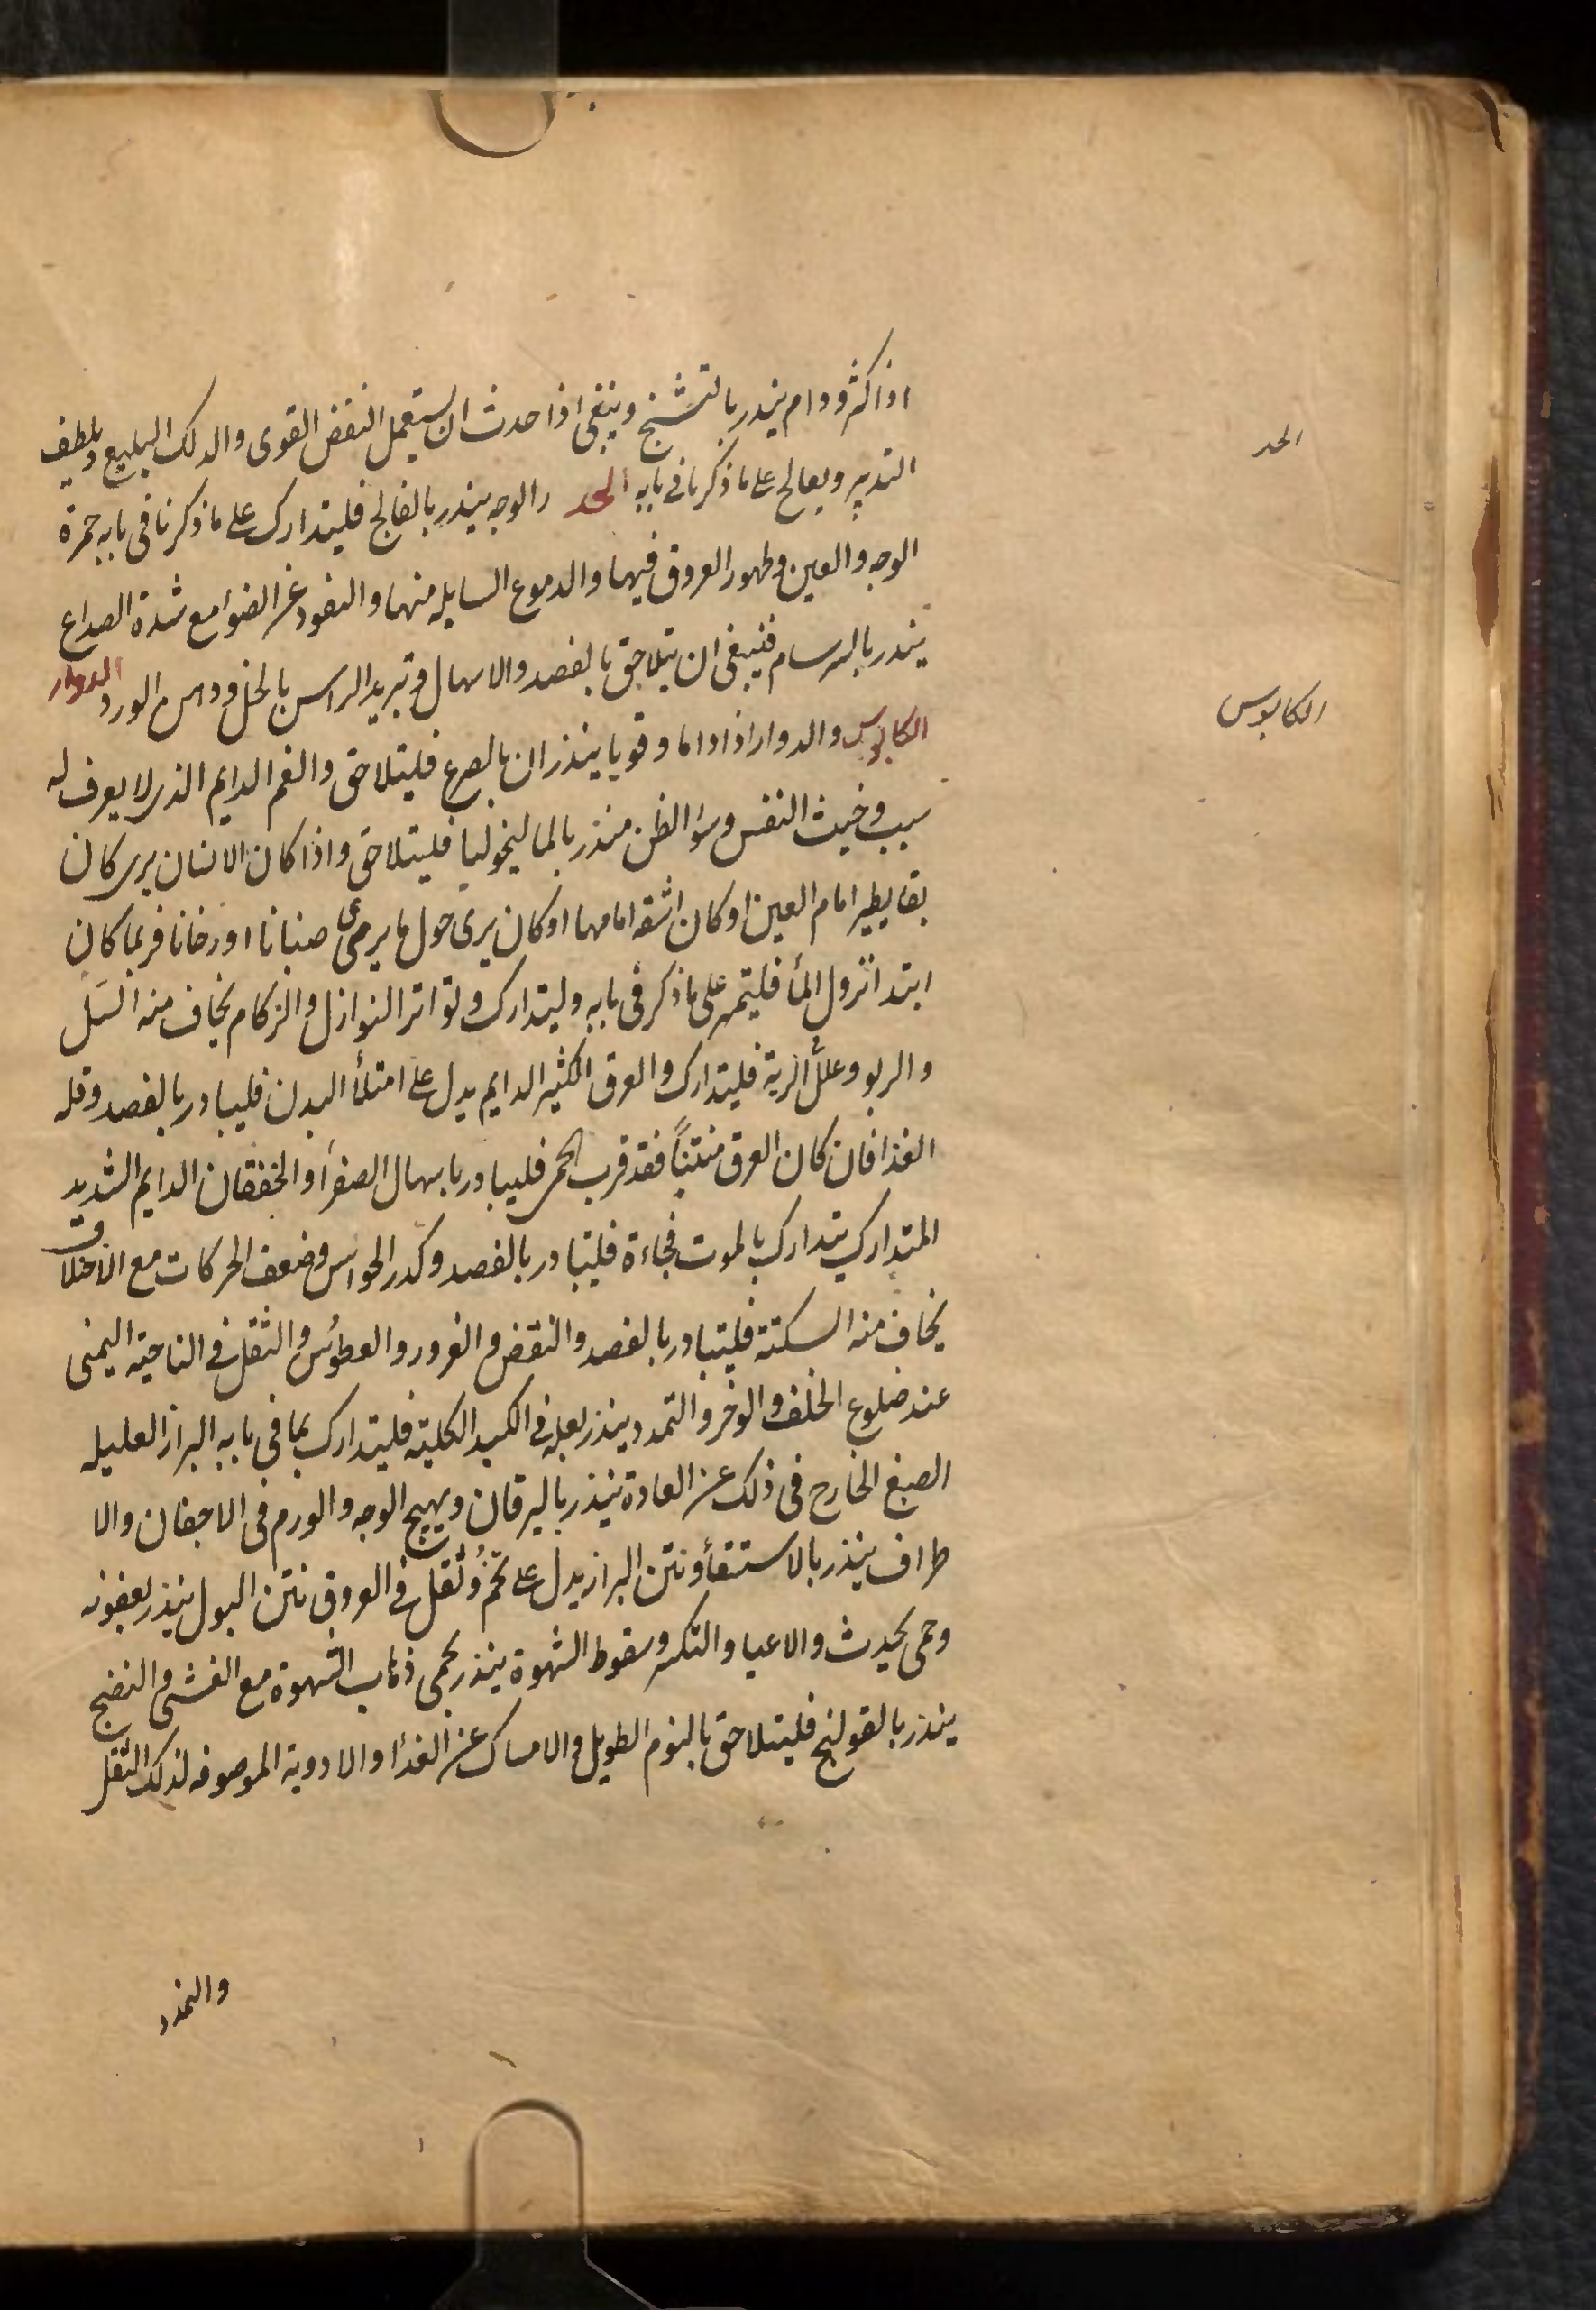 اذا كثر ودام ينذر بالتشنج وينبغى اذا حدث ان يستعمل النفض القوى والدلك البليغ ويلطف
التدبير ويعالج على ما ذكرنا فى بابه الخدر والوجه ينذر بالفالج فليتدارك على ما ذكرنا فى بابه حمرة
الخدر
الوجه والعين وظهور العروق فيهما والدموع السايله منهما والنفود عن الضوا مع شدة الصداع
ينذر بالسرسام فينبغى ان يتلاحق بالفصد والاسهال وتبريد الراس بالخل ودهن الورد الدوار
الكابوس والدوار اذا داما وقويا ينذران بالصرع فليتلاحق والغم الدايم الذى لا يعرف له
الكابوس
سبب وخبث النفس وسؤ الظن منذر بالماليخوليا فليتلاحق واذا كان الانسان يرى كان
بقا يطير امام العين او كان اشقه امامها او كان يرى حول ما يرمى ضبابا او دخانا فربما كان
ابتدا نزول المأ فليتمر على ما ذكر فى بابه وليتدارك وتواتر النوازل والزكام يخاف منه السل
والربو وعلل الرية فليتدارك والعرق الكثير الدايم يدل على امتلأ البدن فليبادر بالفصد وقله
الغذا فان كان العرق منتناً فقد قرب الحمى فليبادر باسهال الصفرأ والخفقان الدايم الشديد
المتدارك يتدارك بالموت فجاءة فليتبادر بالفصد وكدر الحواس وضعف الحركات مع الامتلا
يخاف منه السكتة فليتبادر بالفصد والنقض والغرور والعطوس والثقل فى الناحية اليمنى
عند ضلوع الخلف والوخز والتمدد ينذر بعله فى الكبد الكلية فليتدارك بما فى بابه البراز العليله
الصبغ الخارج فى ذلك عن العادة ينذر باليرقان ويهيج الوجه والورم فى الاجفان والا
طراف ينذر بالاستسقأ ونتن البراز يدل على تخم وثقل فى العروق نتن البول ينذر بعفونه
وحمى يحدث والاعيا والتكسر وسقوط الشهوة ينذر بحمى ذهاب الشهوة مع الغشى والنضج
ينذر بالقولنج فليتلاحق بالنوم الطويل والامساك عن الغذا والادوية الموصوفه لذلك الثقل
والتمدد